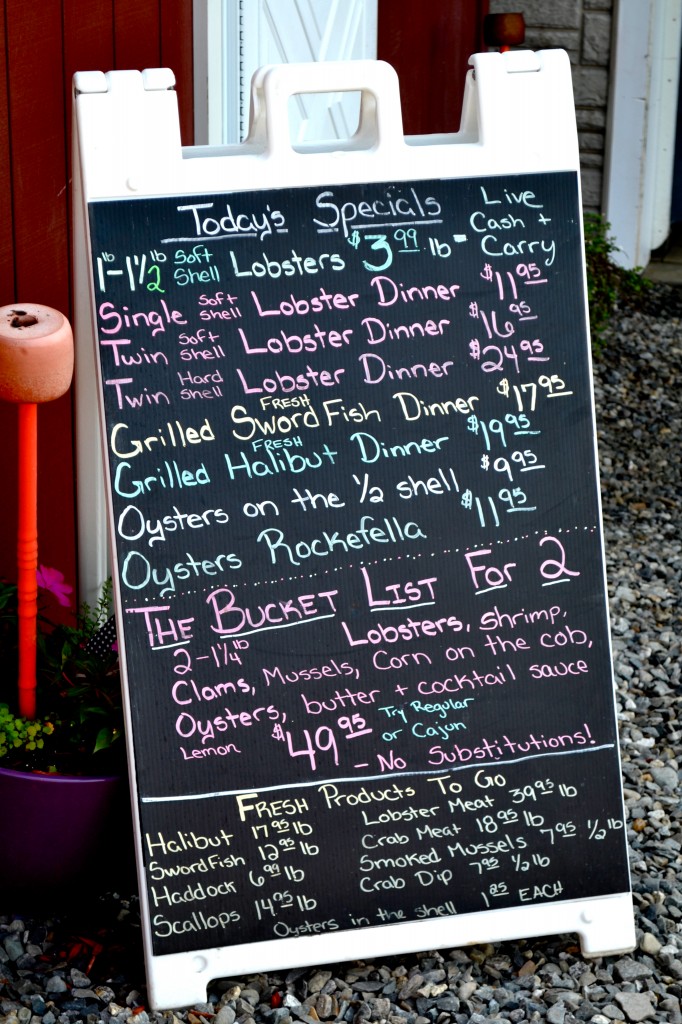 Today's Specials
1lb-1 1/2lb Soft Shell Lobsters $3.99 lb - Live Cash + Carry
Single Soft Shell Lobster Dinner $11.95
Twin Soft Shell Lobster Dinner $16.95
Twin Hard Shell Lobster Dinner $24.95
Grilled FRESH Sword Fish Dinner $17.95
Grilled FRESH Halibut Dinner $19.95
Oysters on the 1/2 shell $9.95
Oysters Rockefella $11.95
THE BUCKET LIST For 2
2-1 1/4lb Lobsters, shrimp,
Clams, Mussels, Corn on the cob,
Oysters, butter + cocktail sauce
Lemon $49.95 Try Regular or Cajun
- No Substitutions!
FRESH Products To Go
Halibut 17.95 lb
SwordFish 12.95 lb
Haddock 6.99 lb
Scallops 14.95 lb
Lobster Meat 39.95 lb
Crab Meat 18.95 lb
Smoked Mussels 7.95 1/2 lb
Crab Dip 7.95 1/2 lb
Oysters in the shell 1.25 EACH